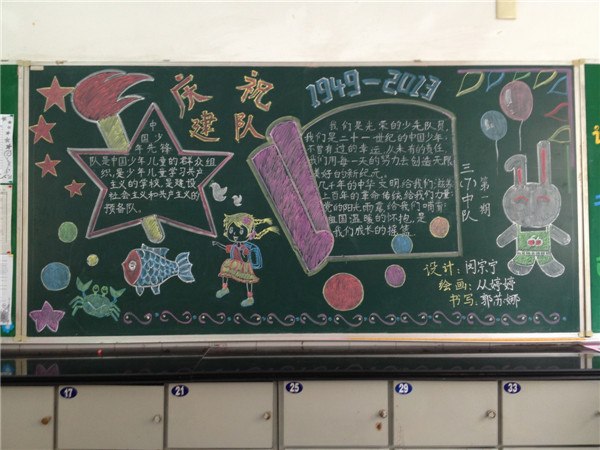 庆祝
建队
1949-2013
中
国少
年先锋
队是中国少年儿童的群众组
织,是少年儿童学习共产
主义的学校,是建设
社会主义和共产主义的
预备队。
我们是光荣的少先队员,
我们是二十一世纪的中国少年,
不曾有过的幸运,从未有的责任,
我们用每一天的努力去创造无限
美好的新纪元。
几千年的中华文明给我们
上百年的革命传统给我们力量
党的阳光雨露给我们哺育
祖国温暖的怀抱,是
我们成长的摇篮。
三(7)中队
第 期
设计:闵宗宁
绘画:从婷婷
书写:郭苏娜
17
21
25
29
33